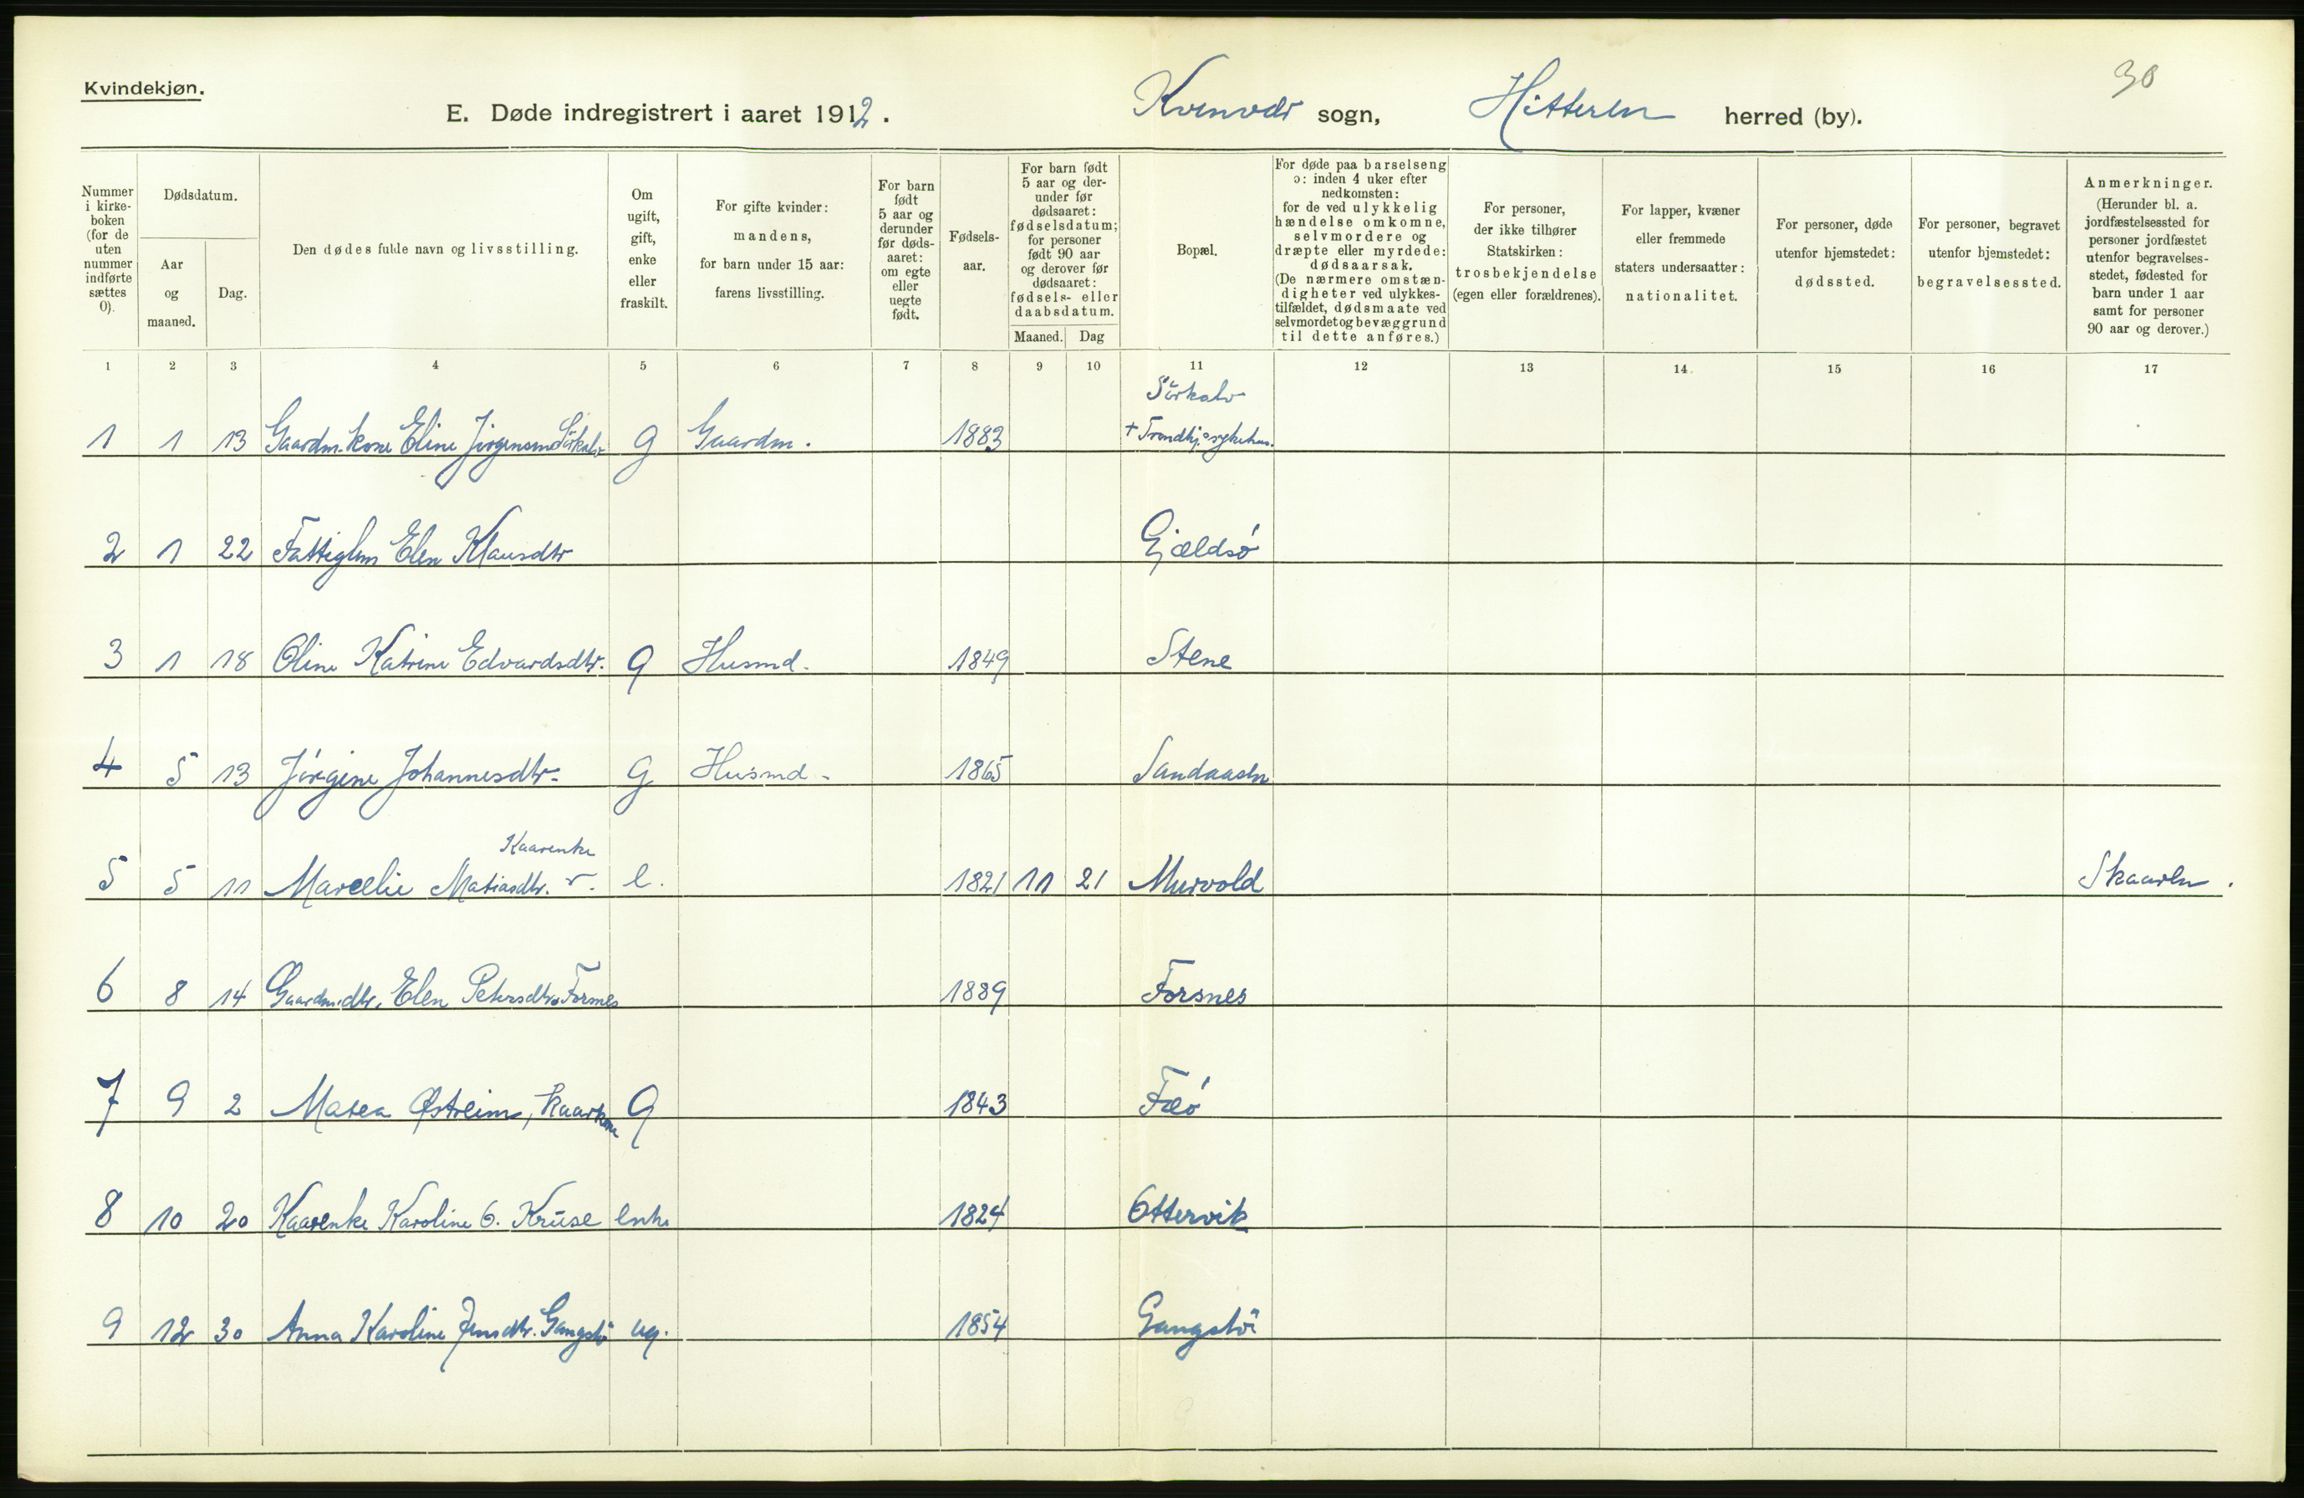 Kvindekjøn.
30
E. Døde indregistrert i aaret 1912. Kvenvær sogn, Hitteren herred (by).
Nummer i kirkeboken (for de uten nummer indførte sættes 0).
Dødsdatum.
Aar og maaned.
Dag.
Den dødes fulde navn og livsstilling.
Om ugift, gift, enke eller fraskilt.
For gifte kvinder: mandens, for barn under 15 aar: farens livsstilling.
For barn født 5 aar og derunder før dødsaaret: om egte eller uegte født.
Fødselsaar.
For barn født 5 aar og derunder før dødsaaret: fødselsdatum; for personer født 90 aar og derover før dødsaaret: fødsels- eller daabsdatum.
Maaned. Dag
Bopæl.
For døde paa barselseng ɔ: inden 4 uker efter nedkomsten: for de ved ulykkelig hændelse omkomne, selvmordere og dræpte eller myrdede: dødsaarsak. (De nærmere omstændigheter ved ulykkestilfældet, dødsmaate ved selvmordet og bevæggrund til dette anføres.)
For personer, der ikke tilhører Statskirken: trosbekjendelse (egen eller forældrenes).
For lapper, kvæner eller fremmede staters undersaatter: nationalitet.
For personer, døde utenfor hjemstedet: dødssted.
For personer, begravet utenfor hjemstedet: begravelsessted.
Anmerkninger. (Herunder bl. a. jordfæstelsessted for personer jordfæstet utenfor begravelsesstedet, fødested for barn under 1 aar samt for personer 90 aar og derover.)
1 2 3 4 5 6 7 8 9 10 11 12 13 14 15 16 17
Sörkalv
1 1 13 Gaardm. kone Eline Jörgensen Sörkalv g Gaardm. 1883 + Trondhj. sykehus.
2 1 22 Fattiglem Elen Klausdtr Gjældsö
3 1 18 Oline Katrine Edvardsdtr. g Husmd. 1849 Stene
4 5 13 Jörgine Johannesdtr. g Husmd. 1865 Sandaasen
Kaarenke
5 5 11 Marcelie Matiasdtr. e. 1821 11 21 Murvold Skaaren.
6 8 14 Gaardm.dtr. Elen Petersdtr. Forsnes 1889 Forsnes
7 9 2 Marea Østreim, Kaarkone g 1843 Fæö
8 10 20 Kaarenke Karoline O. Kruse enke 1824 Ottervik
9 12 30 Anna Karoline Jensdtr. Gangstö ug. 1854 Gangstöi